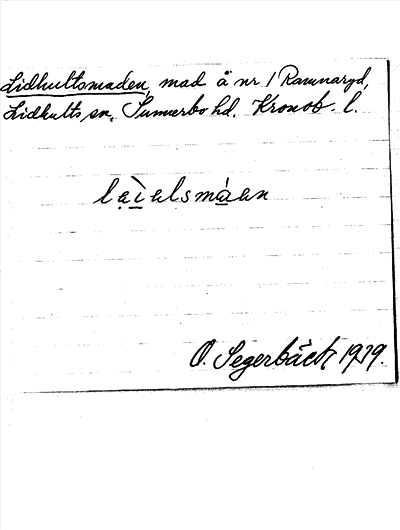 Lidhultsmaden, mad å nr 1 Ramnaryd,
Lidhults sn, Sunnerbo hd. Kronob. l.
lạìəlsmáən
O. Segerbäck 1929.